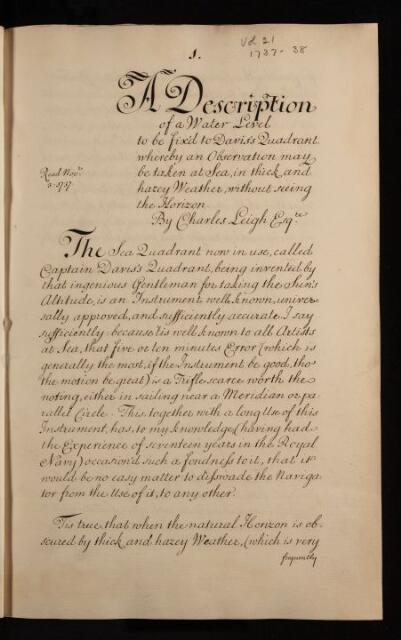 1.
Vol 21
1737-38
A Description
of a Water Level
to be fix'd to Davis's Quadrant
whereby an Observation may
be taken at Sea, in thick and
hazey Weather, without seeing
the Horizon
By Charles Leigh Esqre
Read Novr
3. 1737.
The Sea Quadrant now in use, called
Captain Davis's Quadrant, being invented by
that ingenious Gentleman for taking the Sun's
Altitude, is an Instrument well known, univer-
sally approved, and sufficiently accurate. I say
sufficiently because 'tis well known to all Artists
at Sea, that five or ten minutes Error (which is
generally the most, if the Instrument be good, tho'
the motion be great) is a Trifle scarce worth the
noting, either in sailing near a Meridian or pa-
rallel Circle. This together with a long Use of this
Instrument, has, to my knowledge (having had
the Experience of seventeen years in the Royal
Navy) occasion'd such a fondness to it, that it
would be no easy matter to disswade the Naviga
tor from the Use of it, to any other.
Tis true, that when the natural Horizon is ob-
scured by thick and hazey Weather, (which is very
frequently